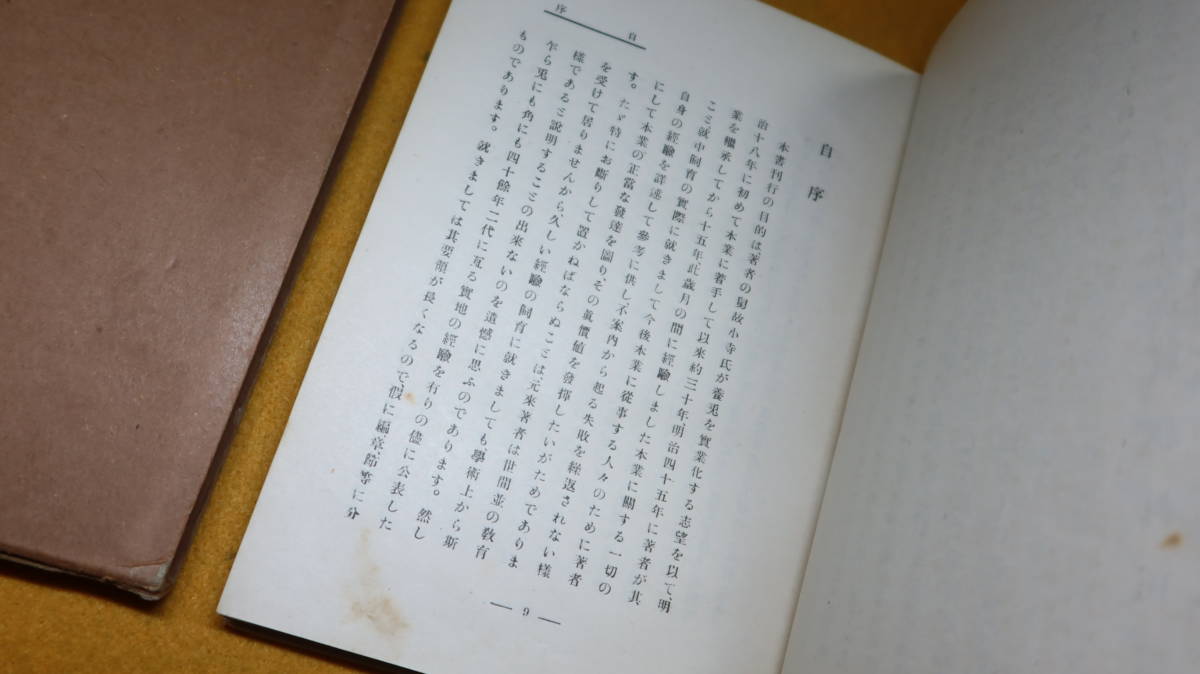 自序
自序
本書刊行の目的は、著者の舅故小寺氏が養兎を實業化する志望を以て、明
治十八年に初めて本業に着手して以來約三十年、明治四十五年に著者が其
業を繼承してから十五年、此歳月の間に經驗しました本業に關する一切の
こミ就中飼育の實際に就きまして今後本業に從事する人々のために著者
自身の經驗を詳述して參考に供し、不案內から起る失敗を繰返されない樣
にして本業の正當な發達を圖り、その眞價値を發揮したいがためでありま
す。たゞ特にお斷りして置かねばならぬこミは、元來著者は世間並の敎育
を受けて居りませんから、久しい經驗の飼育に就きましても、學術上から斯
樣であるミ說明するこミの出來ないのを遺憾に思ふのであります。然し
乍ら兎にも角にも四十餘年二代に亙る實地の經驗を有りの儘に公表した
ものであります。就きましては其要領が長くなるので、假に編、章、節等に分
— 9 —